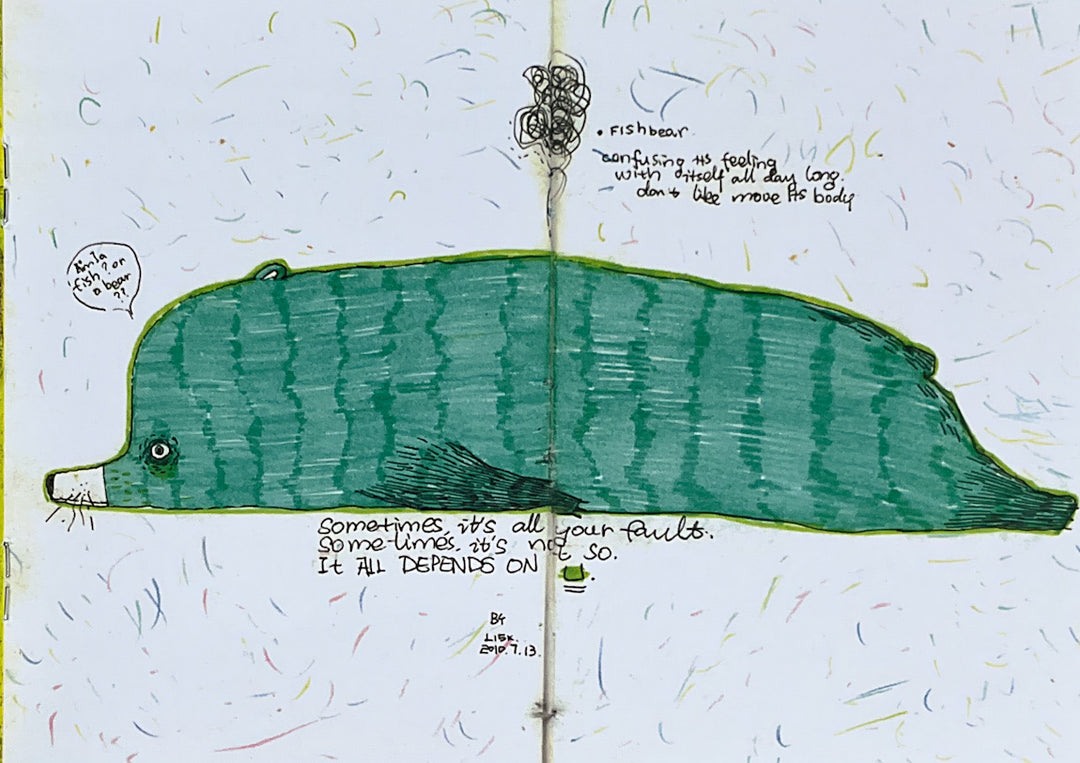 • Fishbear.
confusing its feeling
with itself all day long.
don't like move its body
Am I a
fish? or
a bear
??
Sometimes, it's all your fault.
Sometimes. it's not so.
It ALL DEPENDS ON U.
BY
LIEK.
2010.7.13.